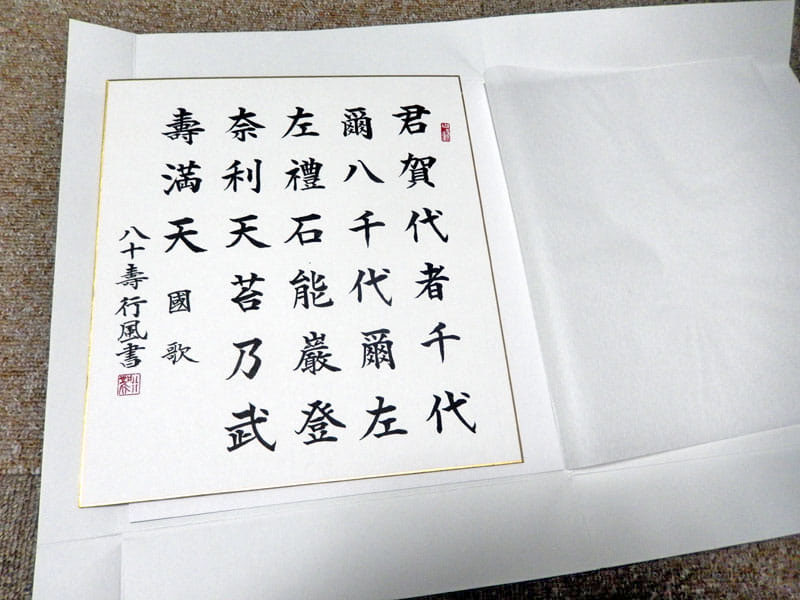 君賀代者千代
爾八千代爾左
左禮石能巖登
奈利天苔乃武
壽滿天 國歌
八十壽 行風書